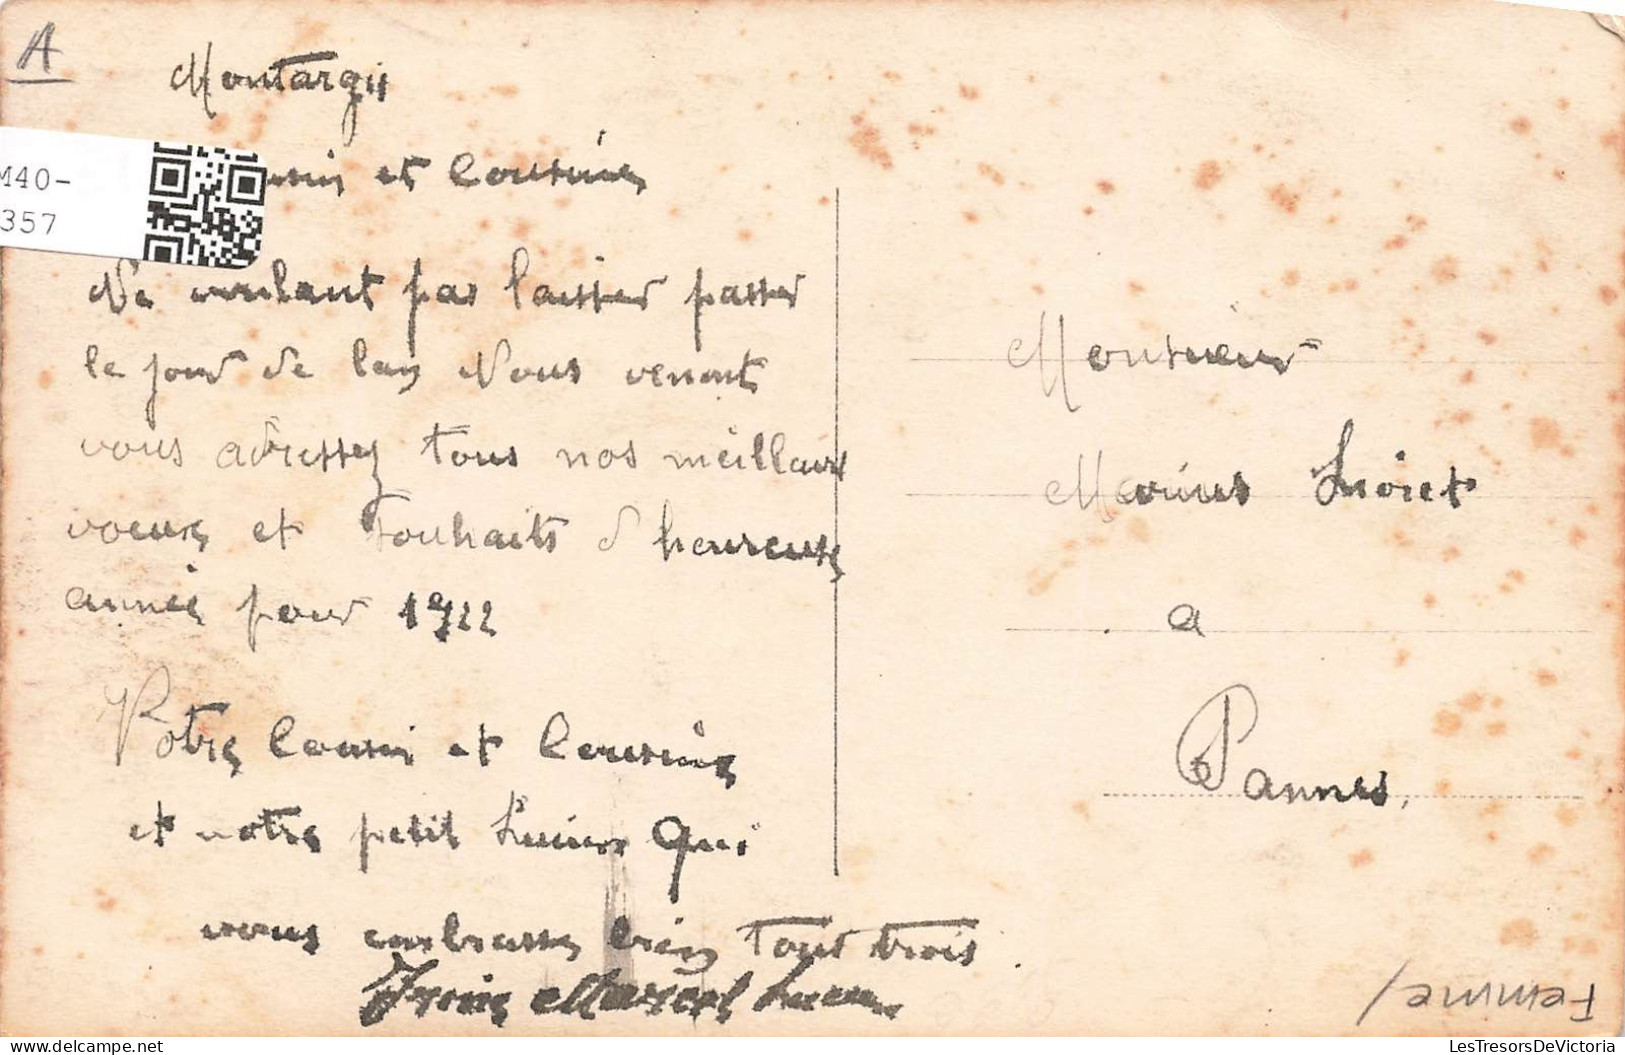 A
Montargis
M40-
357
et Cousines
Ne voulant pas laisser passer
le jour de lan Nous venont
vous adressez tous nos meilleurs
voeux et souhaits d heureuse
année pour 1922
Votre Cousin et Cousine
et notre petit Lucien qui
vous embrasse bien tout trois
Marcel Lucien
Monsieur
Marius
a
Pannes.
Femme/
LesTresorsDeVictoria